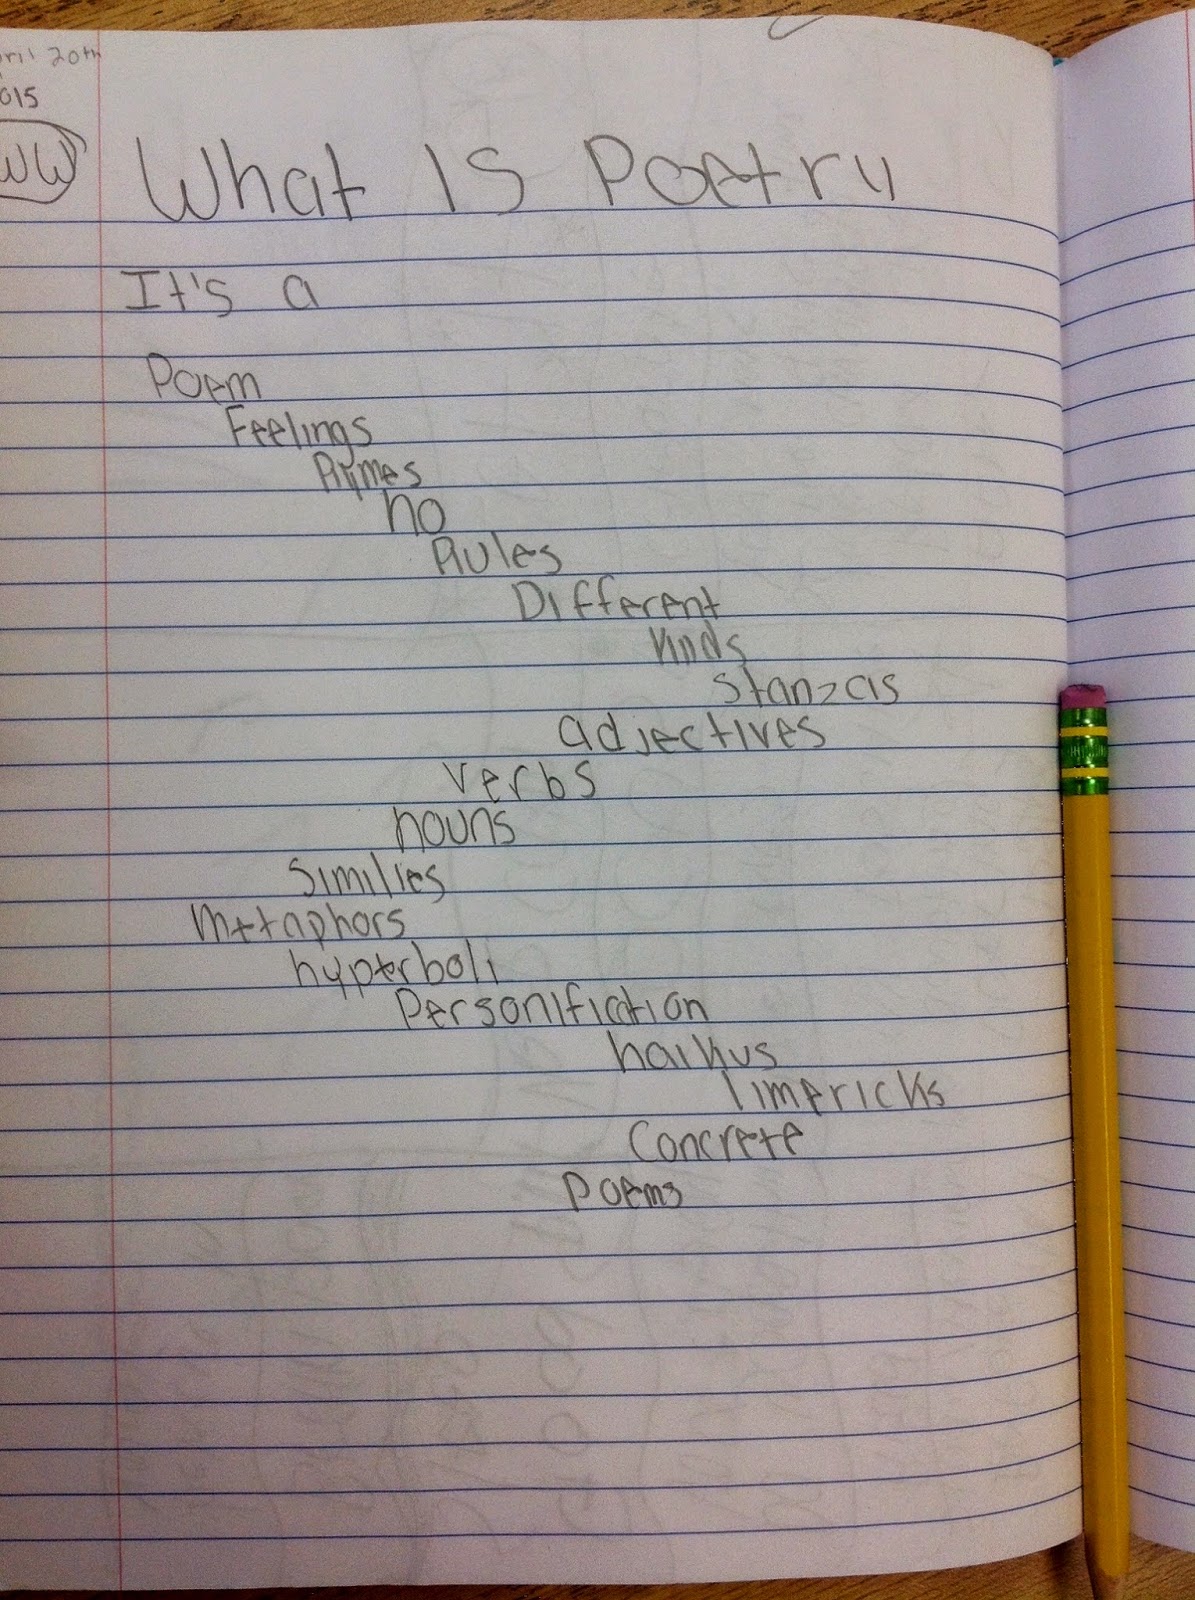 ril 20th
015
WW
What Is Poetry
It's a
Poem
Feelings
Rymes
no
Rules
Different
Kinds
Stanzas
adjectives
verbs
nouns
Similies
Metaphors
hyperboli
Personification
haikus
limericks
Concrete
Poems